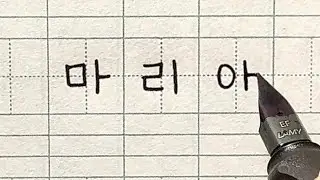 마 리 아
EF
LAMY